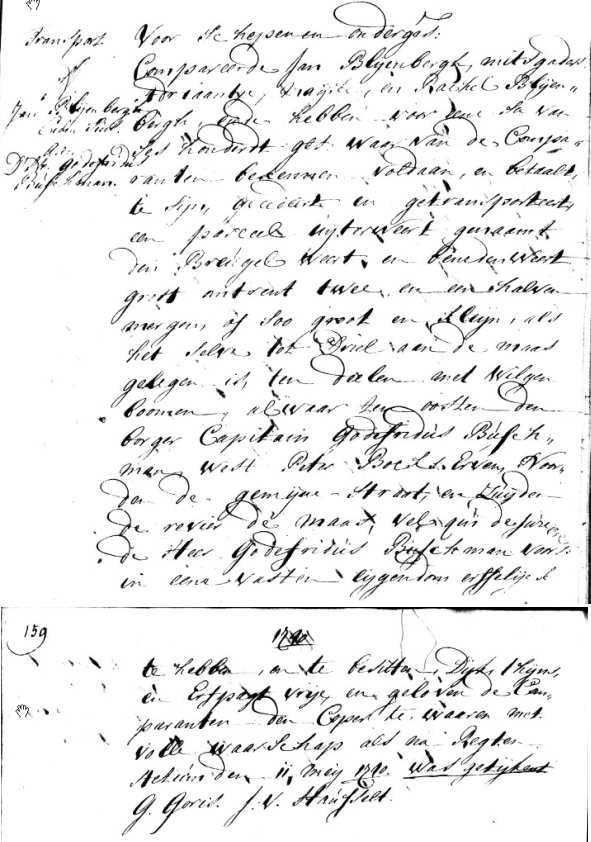 Transport
Jan Blijenbergh
Godefridus
Buschman
Voor Schepenen ondergs:
Compareerde Jan Blijenbergh, mitsgaders
Adriaantie, Maijke, en Rachel Blijen„
bergh, ende hebben voor eene Sa van
Ses hondert gl: waar van de Compa„
ranten bekennen voldaan, en betaalt,
te sijn, gecedeert en getransporteert,
een parceel uijterweert genaamt
den Breugel weert, en beneden weert
groot ontrent twee en een halven
mergen, of soo groot en kleijn, als
het selve tot Driel aan de maas
gelegen is, ten deelen met wilgen
boomen, alwaar ten oosten den
borger Capitain Godefridus Busch„
man, west Peter Bocks Erven, Noor„
den de gemijne Straat, en Zuijden
de rovier de maas, vel qui de jure
de Heer Godefridus Buschman vors:
in eene vasten eijgendom erffelijck
159
1740
te hebben, en te besitten, Dijk, thijns,
en Erfpagt vrije, en geloven de Com„
paranten den Coper te waaren met
volle waarschap als na Regten
Actum den 11 meij 1740. was getekent
G. Goris. J. V. Hansselt.